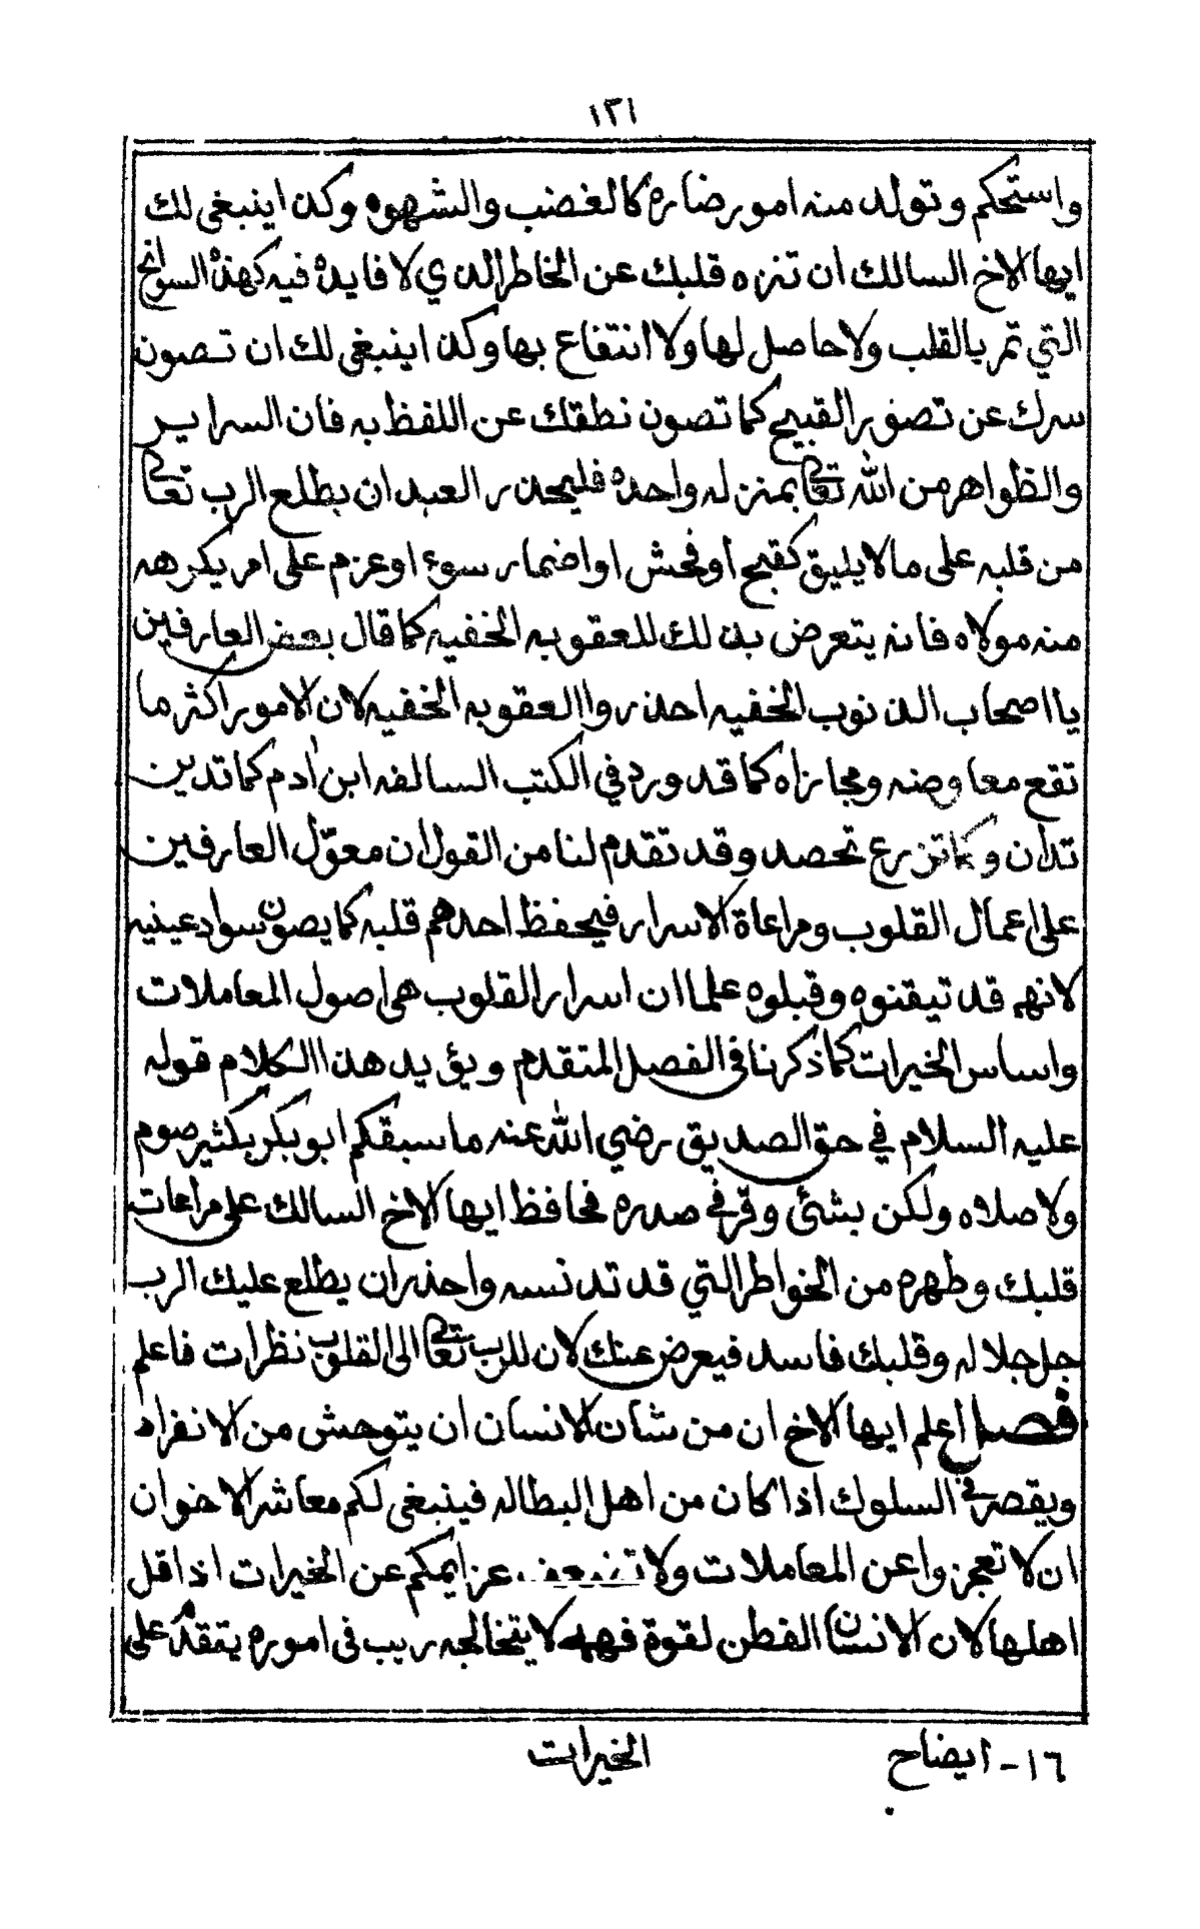 ١٣١
واستحكم وتولد منه امور ضاره كالغضب والشهوه وكذا ينبغي لك
ايها الاخ السالك ان تنزه قلبك عن الخاطر الذي لا فايدة فيه كهذه السوانح
التي تمر بالقلب ولا حاصل لها ولا انتفاع بها وكذا ينبغي لك ان تصون
سرك عن تصور القبيح كما تصون نطقك عن اللفظ به فان السراير
والظواهر من الله تعالى بمنزله واحده فليحذر العبد ان يطلع الرب تعالى
من قلبه على ما لا يليق كقبح او فحش او اضمار سوء او عزم على امر يكرهه
منه مولاه فانه يتعرض بذلك للعقوبه الخفيه كما قال بعض العارفين
يا اصحاب الذنوب الخفيه احذروا العقوبه الخفيه لان الامور اكثر ما
تقع معاوضه ومجازاه كما قد ورد في الكتب السالفه ابن آدم كما تدين
تدان وكما تزرع تحصد وقد تقدم لنا من القول ان معوّل العارفين
على اعمال القلوب ومراعاة الاسرار فيحفظ احدهم قلبه كما يصون سواد عينيه
لانهم قد تيقنوه وقبلوه علما ان اسرار القلوب هي اصول المعاملات
واساس الخيرات كما ذكرنا في الفصل المتقدم ويؤيد هذا الكلام قوله
عليه السلام في حق الصديق رضي الله عنه ما سبقكم ابو بكر بكثير صوم
ولا صلاه ولكن بشئ وقر في صدره فحافظ ايها الاخ السالك على مراعات
قلبك وطهره من الخواطر التي قد تدنسه واحذر ان يطلع عليك الرب
جل جلاله وقلبك فاسد فيعرض عنك لان للرب تعالى الى القلوب نظرات فاعلم
فصل اعلم ايها الاخ ان من شان الانسان ان يتوحش من الانفراد
ويقصر في السلوك اذا كان من اهل البطاله فينبغي لكم معاشر الاخوان
ان لا تعجزوا عن المعاملات ولا تضعف عزايمكم عن الخيرات اذا قل
اهلها لان الانسان الفطن لقوة فهمه لا يتخالجه ريب في اموره يتقدم على
١٦ - ايضاح
الخيرات